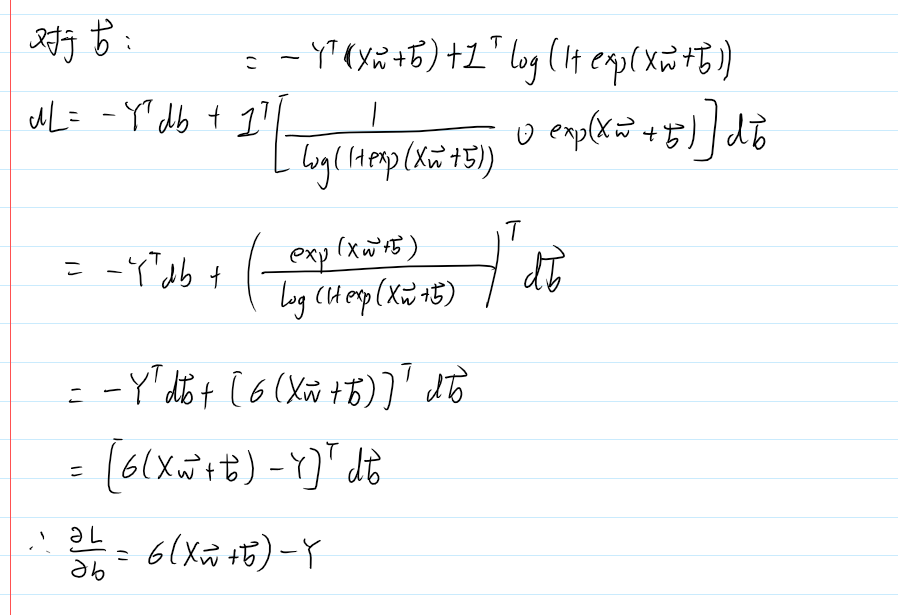 对于 b⃗ :
= - Yᵀ(Xw⃗+b⃗) + 1ᵀ log(1+ exp(Xw⃗+b⃗))
dL = - Yᵀ db + 1ᵀ[ 1 / log(1+exp(Xw⃗+b⃗)) ⊙ exp(Xw⃗+b⃗) ] db⃗
= - Yᵀ db + ( exp(Xw⃗+b⃗) / log(1+exp(Xw⃗+b⃗) )ᵀ db⃗
= - Yᵀ db⃗ + [σ(Xw⃗+b⃗)]ᵀ db⃗
= [σ(Xw⃗+b⃗) - Y]ᵀ db⃗
∴ ∂L/∂b = σ(Xw⃗+b⃗) - Y